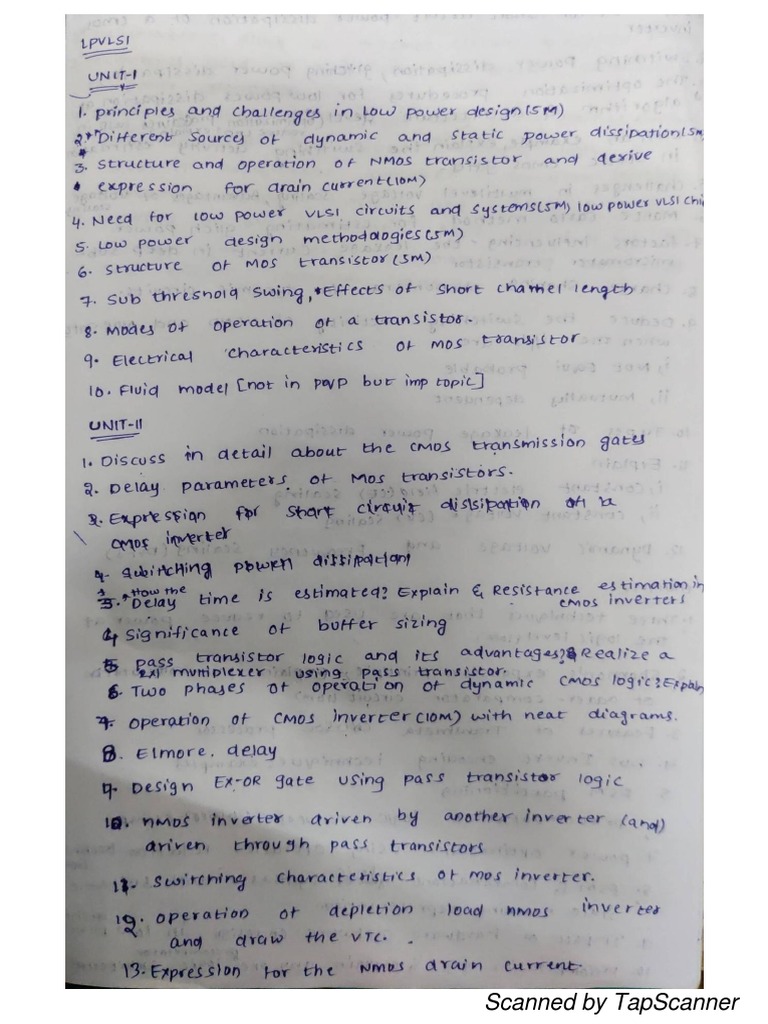 LPVLSI
UNIT-I
1. principles and challenges in Low power design (5M)
2. Different Sources of dynamic and static power dissipation (5M
3. Structure and operation of NMOS transistor and derive
expression for drain current (10M)
4. Need for low power VLSI circuits and systems (5M) low power VLSI chi
5. Low power design methodologies (5M)
6. Structure of MOS transistor (5M)
7. Sub threshold Swing, *Effects of short channel length
8. Modes of operation of a transistor.
9. Electrical characteristics of MOS transistor
10. Fluid model [not in but imp topic]
UNIT-II
1. Discuss in detail about the CMOS transmission gates
2. Delay parameters of Mos transistors.
3. Expression for short circuit dissipation of a
CMOS, inverter
4. switching power dissipation
3. How the Delay time is estimated? Explain & Resistance estimation in
CMOS inverters
4. Significance of buffer sizing
5. pass transistor logic and its advantages? & Realize a
2x1 multiplexer using pass transistor.
6. Two phases of operation of dynamic CMOS logic? Explain
7. operation of CMOS inverter (10M) with neat diagrams.
8. Elmore. delay
9. Design EX-OR gate using pass transistor logic
10. nMOS inverter driven by another inverter (and)
driven through pass transistors
11. Switching characteristics of mos inverter.
12. operation of depletion load nMOS inverter
and draw the VTC.
13. Expression for the NMOS drain current.
Scanned by TapScanner